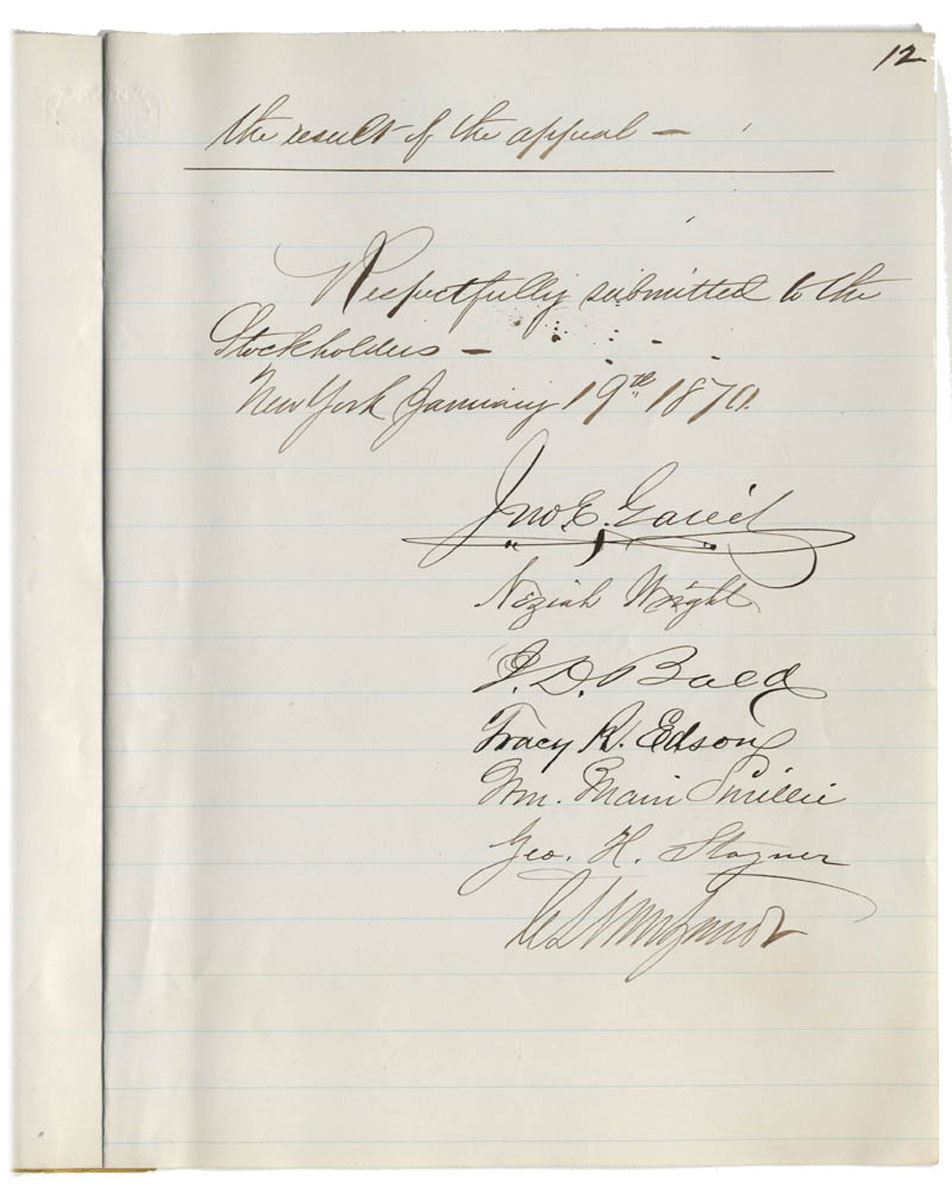 12
the result of the appeal –
Respectfully submitted to the
Stockholders –
New York January 19th 1870.
Jno E. Gavit
Neziah Wright
J. D. Bald
Tracy R. Edson
Wm. Main Smillie
Geo. H. Stayner